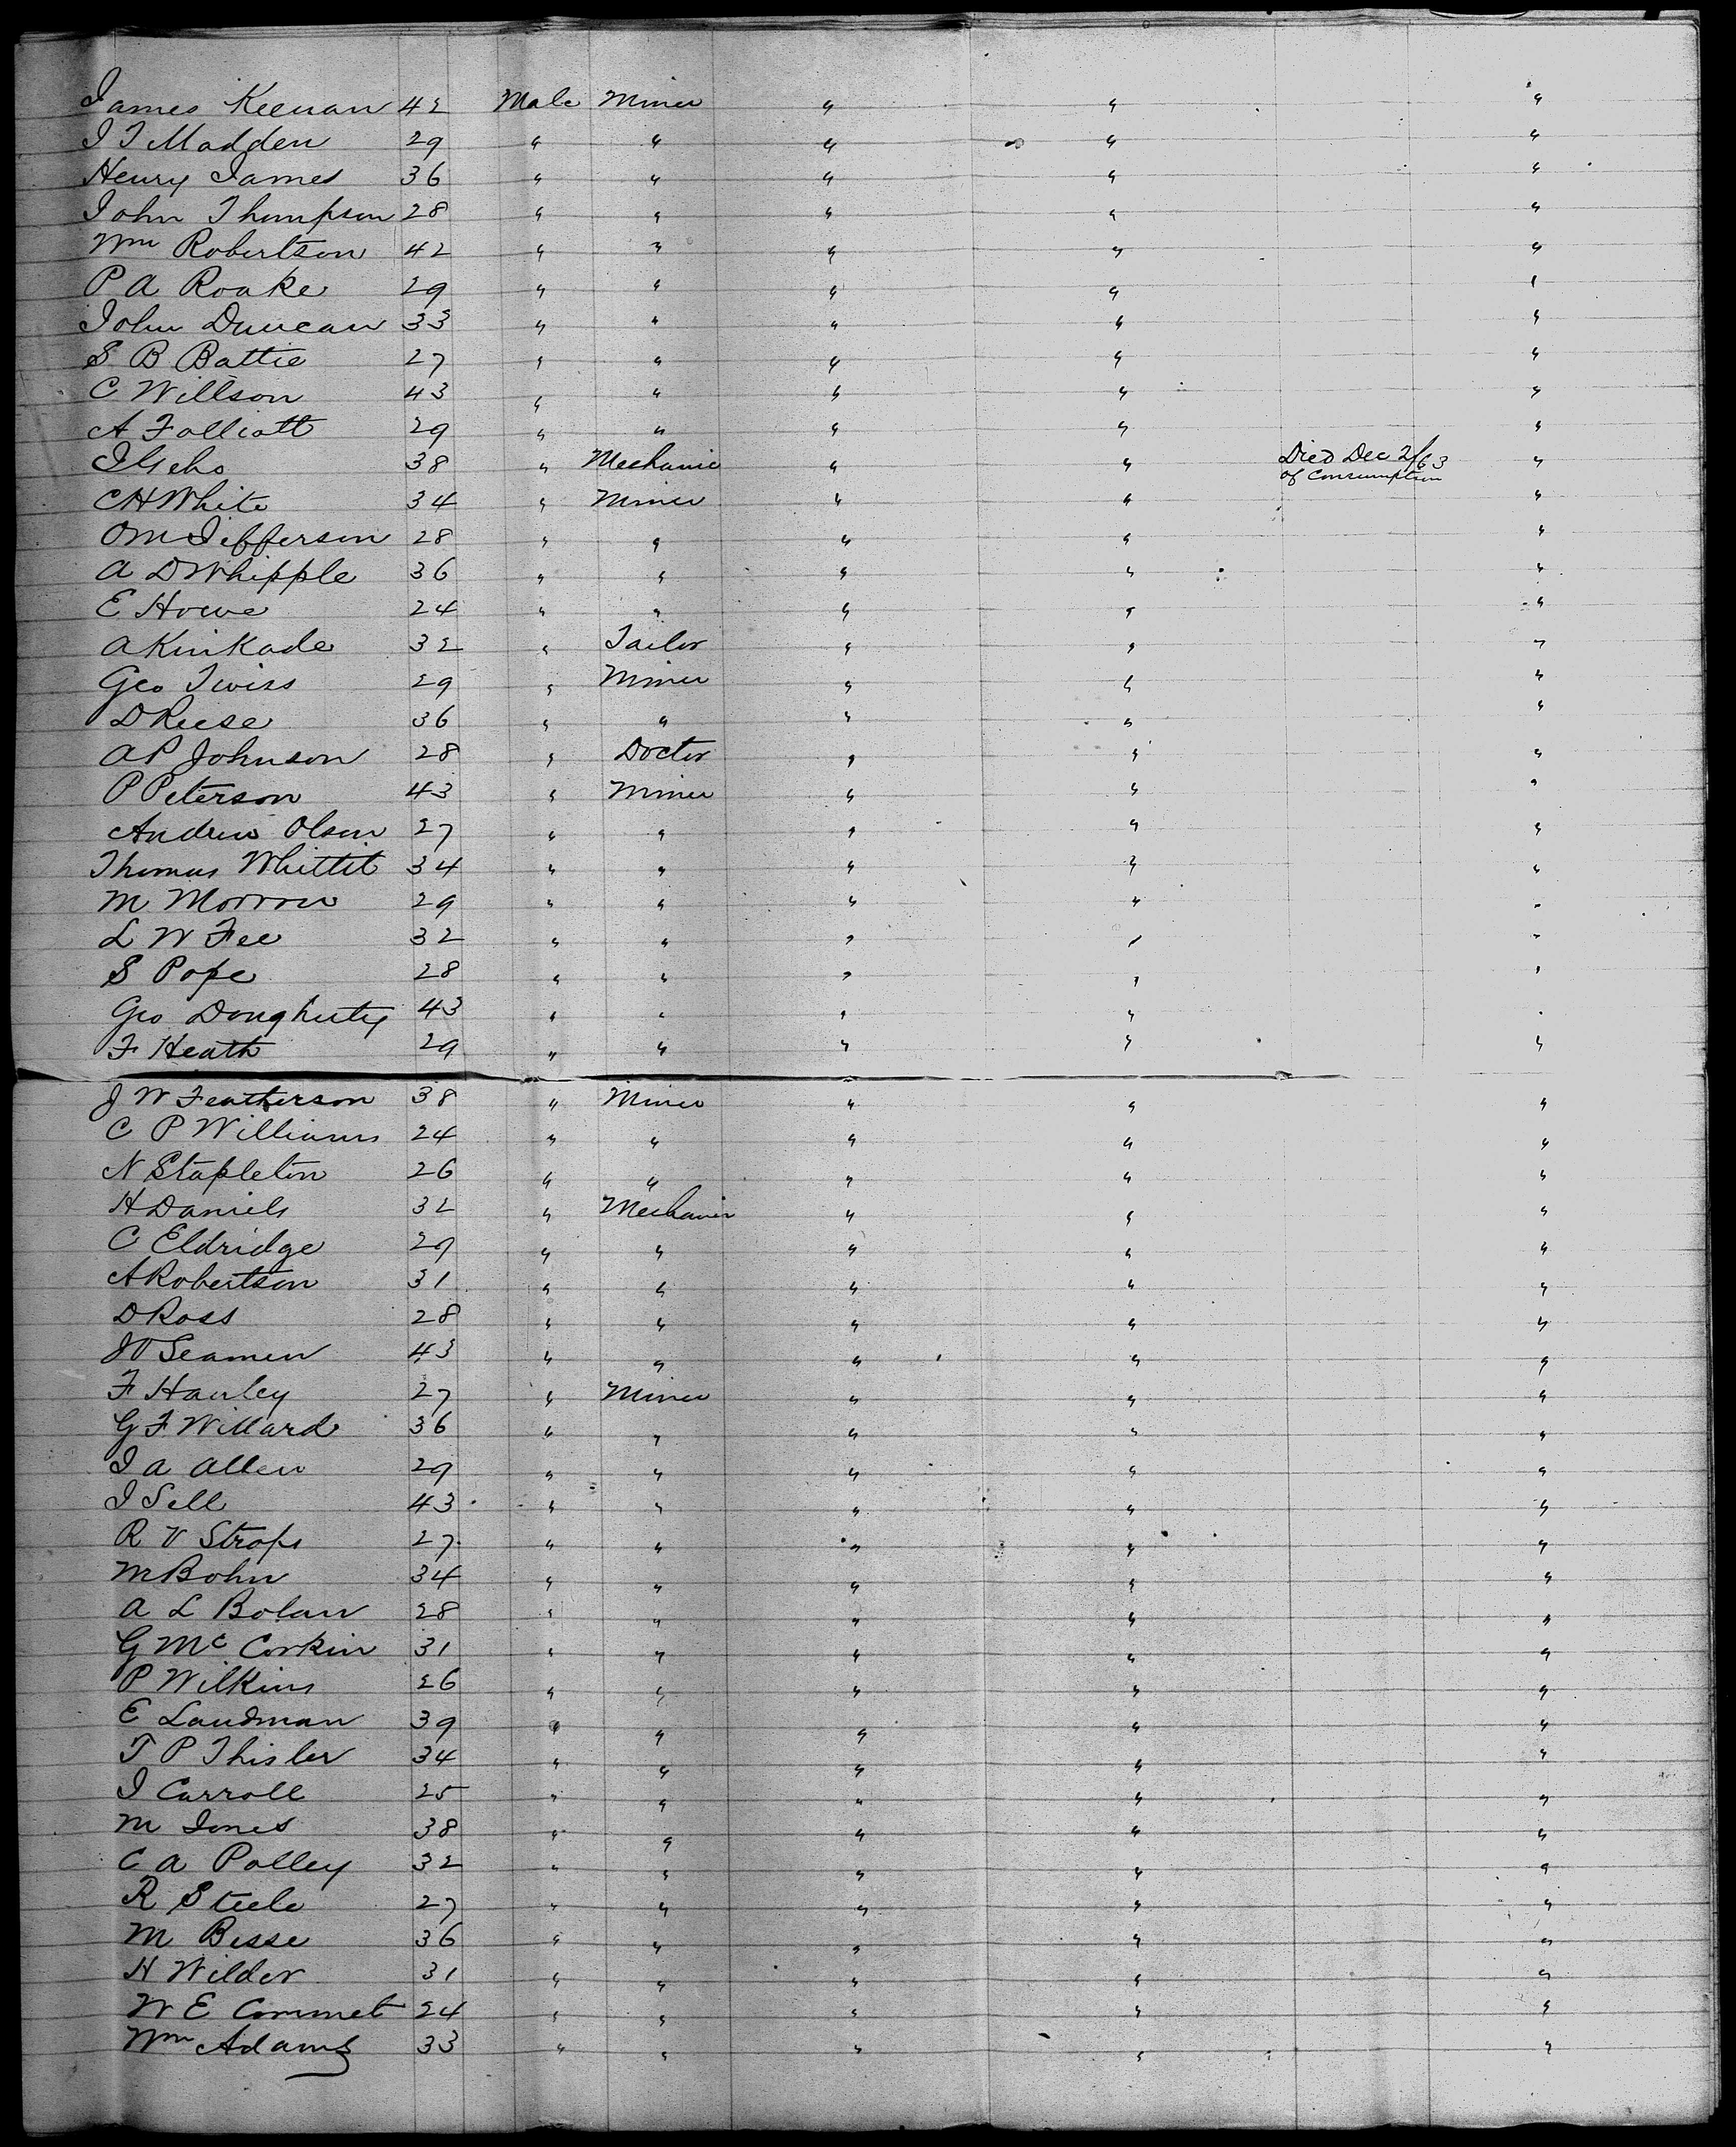 James Keenan 42 Male Miner " " "
I T Madden 29 " " " " "
Henry James 36 " " " " "
John Thompson 28 " " " " "
Wm Robertson 42 " " " " "
P A Roake 29 " " " " "
John Duncan 33 " " " " "
S B Battie 27 " " " " "
C Willson 43 " " " " "
A Folliott 29 " " " " "
38 " Mechanic " " Died Dec 2/63 "
of Consumption
C H White 34 " Miner " " "
O M Jefferson 28 " " " " "
A D Whipple 36 " " " " "
E Howe 24 " " " " "
A Kinkade 32 " Tailor " " "
Geo Twiss 29 " Miner " " "
D Reese 36 " " " " "
A P Johnson 28 " Doctor " " "
P Peterson 43 " Miner " " "
Andrew Olson 27 " " " " "
Thomas Whittit 34 " " " " "
M Morrow 29 " " " " "
L W Fee 32 " " " " "
S Pope 28 " " " " "
Geo Dougherty 43 " " " " "
F Heath 29 " " " " "
J W Featherson 38 " Miner " " "
C P Williams 24 " " " " "
N Stapleton 26 " " " " "
H Daniels 32 " Mechanic " " "
C Eldridge 29 " " " " "
A Robertson 31 " " " " "
D Ross 28 " " " " "
Seamen 43 " " " " "
F Hanley 27 " Miner " " "
G F Willard 36 " " " " "
I A Allen 29 " " " " "
I Sell 43 " " " " "
R V Strops 27 " " " " "
M Bohn 34 " " " " "
A L Bolan 28 " " " " "
G Mc Corkin 31 " " " " "
P Wilkins 26 " " " " "
E Landman 39 " " " " "
T P Thisler 34 " " " " "
I Carroll 25 " " " " "
M Jones 38 " " " " "
C A Polley 32 " " " " "
R Steele 27 " " " " "
M Besse 36 " " " " "
H Wilder 31 " " " " "
W E Commet 24 " " " " "
Wm Adams 33 " " " " "